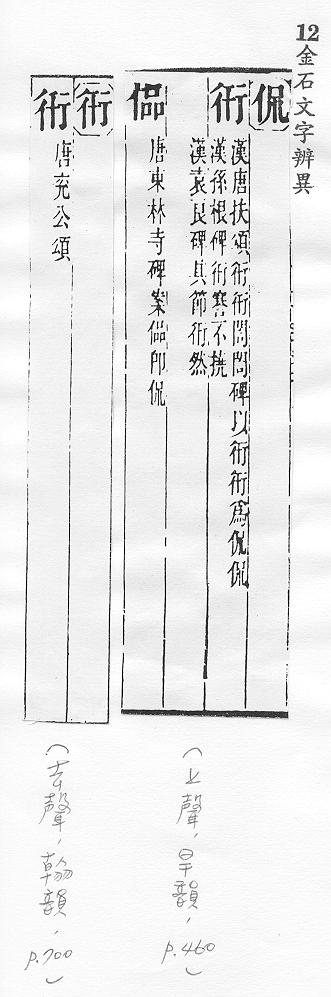 12 金石文字辨異
侃
衎 漢唐扶頌衎衎誾誾碑以衎衎爲侃侃
漢孫根碑衎謇不撓
漢袁良碑其節衎然
偘 唐東林寺碑案偘即侃
(上聲,旱韻,p.460)
衎
衎 唐兗公頌
(去聲,翰韻,p.700)